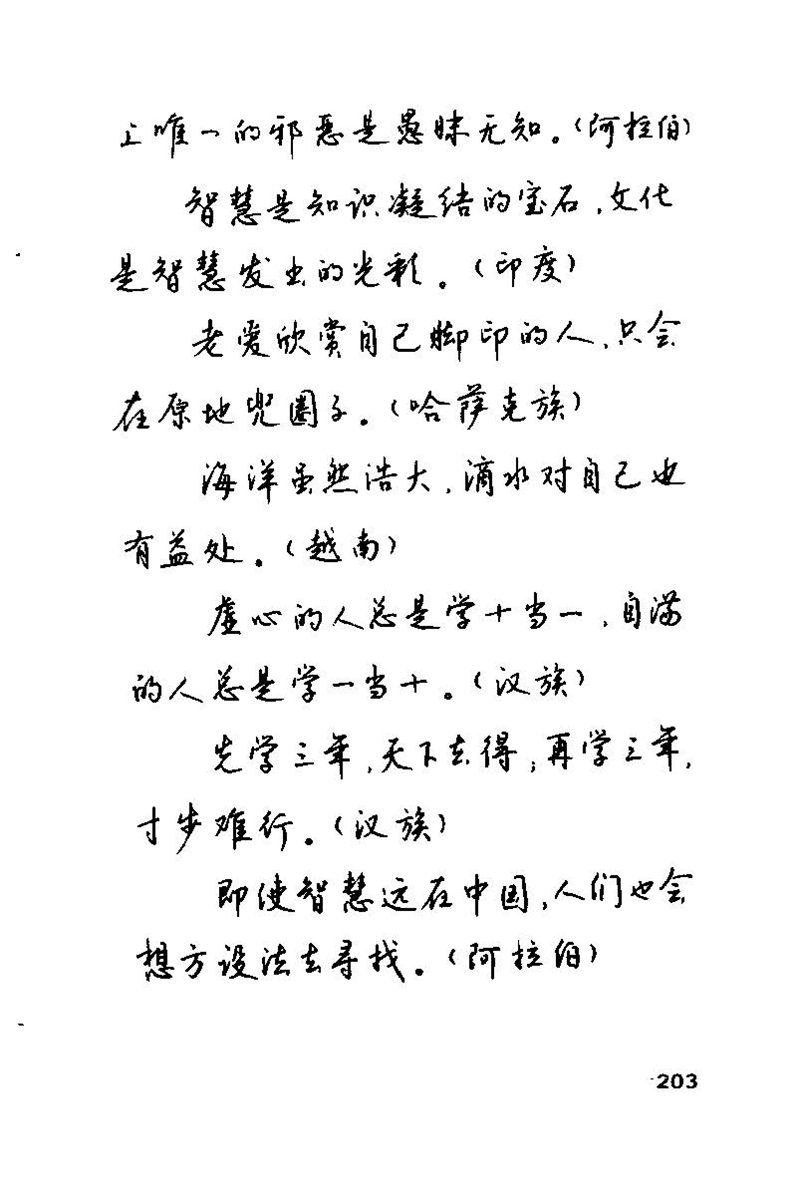 上唯一的邪恶是愚昧无知。(阿拉伯)
智慧是知识凝结的宝石,文化
是智慧发出的光彩。(印度)
老爱欣赏自己脚印的人,只会
在原地兜圈子。(哈萨克族)
海洋虽然浩大,滴水对自己也
有益处。(越南)
虚心的人总是学十当一,自满
的人总是学一当十。(汉族)
先学三年,天下去得;再学三年,
寸步难行。(汉族)
即使智慧远在中国,人们也会
想方设法去寻找。(阿拉伯)
203